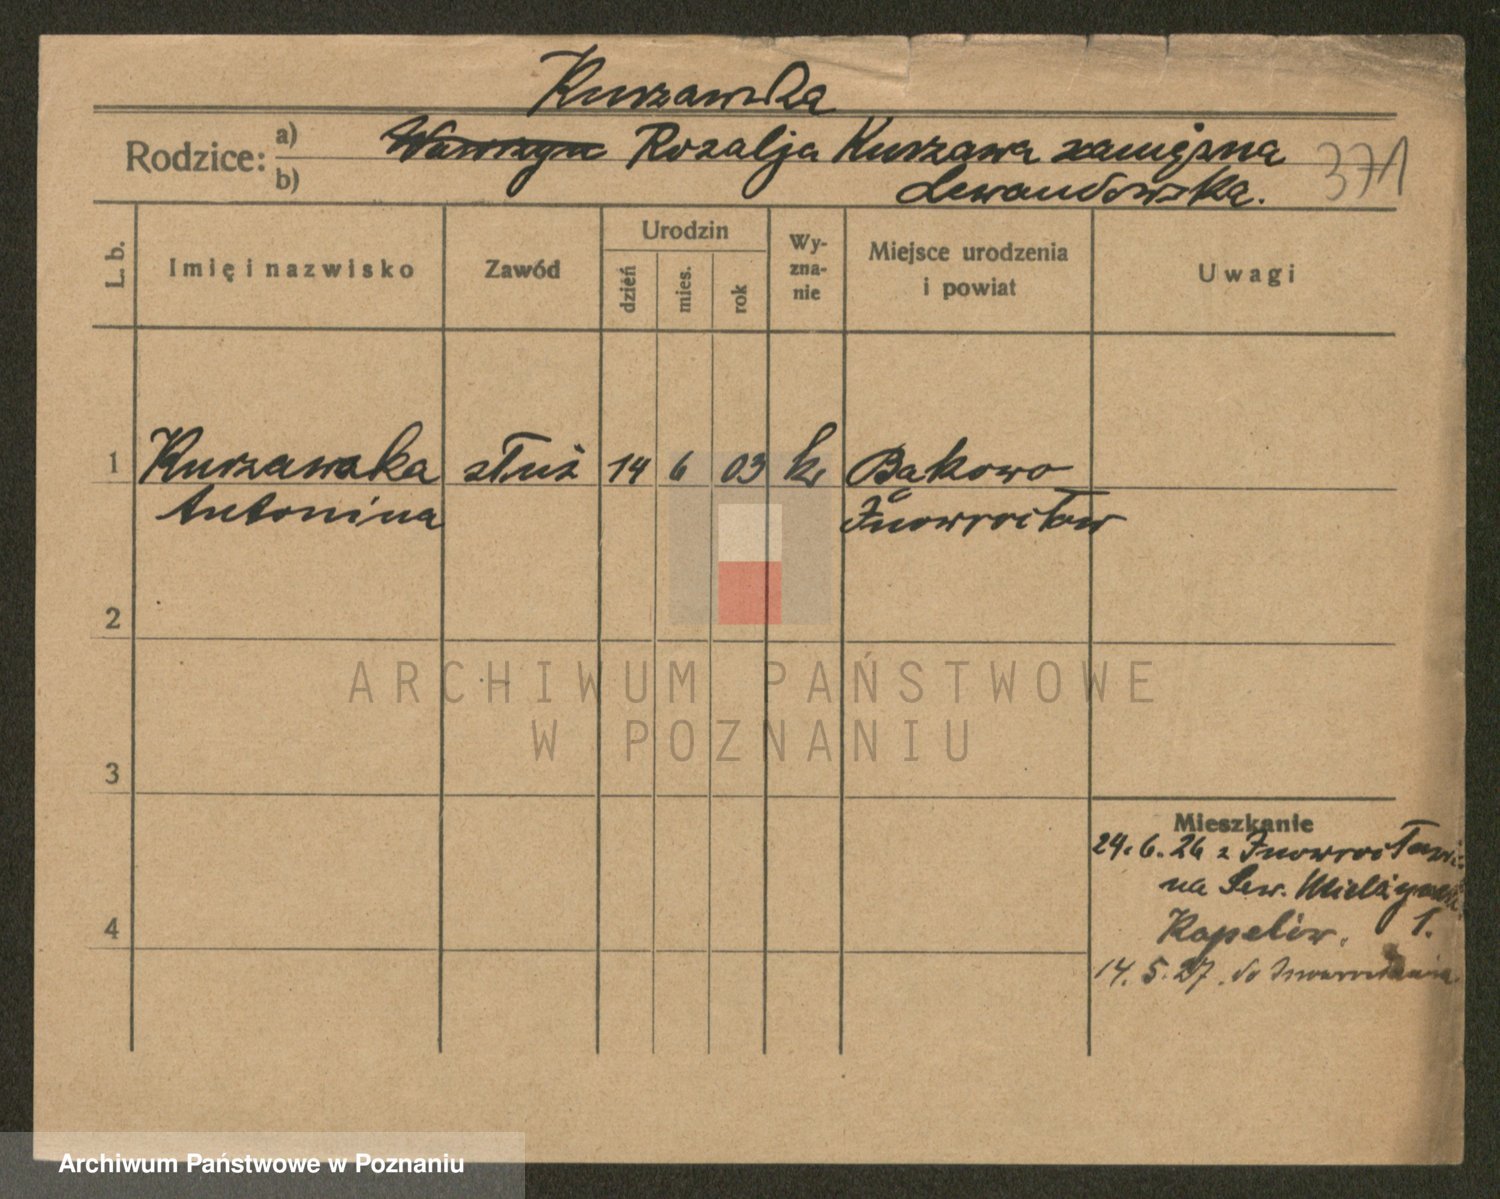 Kurzawska
Rodzice: a) Wawrzyn Rozalja Kurzawa zamężna
b) Lewandowska.
371
L. b.
Imię i nazwisko
Zawód
Urodzin
dzień
mies.
rok
Wy-
zna-
nie
Miejsce urodzenia
i powiat
Uwagi
1 Kurzawska służ 14 6 03 k Bąkowo
Antonina Inowrocław
2
ARCHIWUM PAŃSTWOWE
W POZNANIU
3
Mieszkanie
24.6.26 z Inowrocławia
na Sew. Mielżyńsk.
4 1.
14.5.27. do Inowrocławia
Archiwum Państwowe w Poznaniu